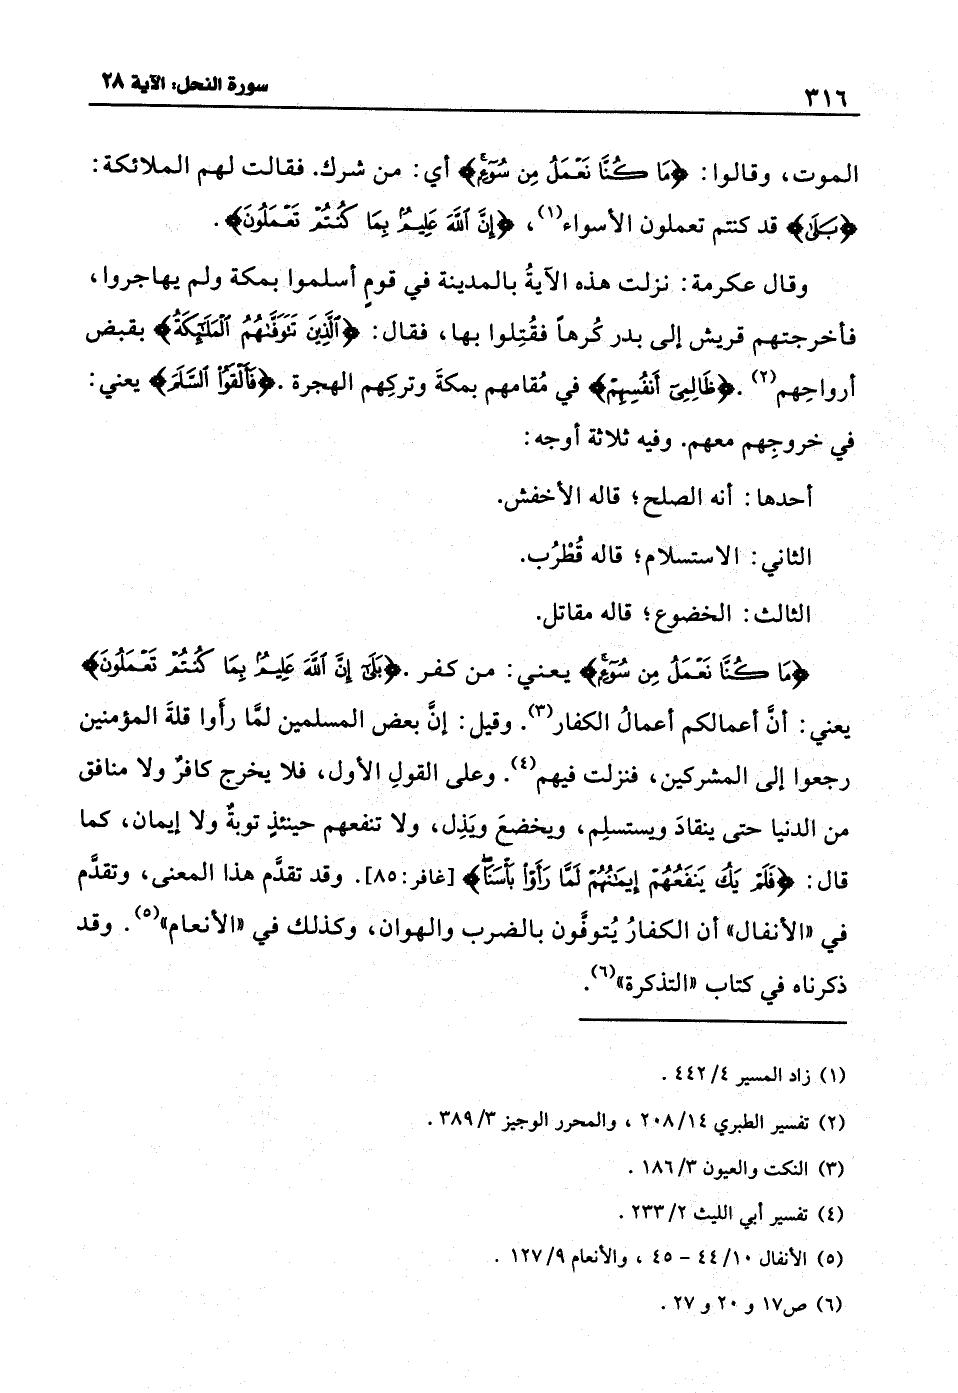 ٣١٦
سورة النحل: الآية ٢٨
الموت، وقالوا: ﴿مَا كُنَّا نَعْمَلُ مِن سُوٓءٍۢ﴾ أي: من شرك. فقالت لهم الملائكة:
﴿بَلَىٰ﴾ قد كنتم تعملون الأسواء(١)، ﴿إِنَّ ٱللَّهَ عَلِيمٌۢ بِمَا كُنتُمْ تَعْمَلُونَ﴾.
وقال عكرمة: نزلت هذه الآيةُ بالمدينة في قومٍ أسلموا بمكة ولم يهاجروا،
فأخرجتهم قريش إلى بدر كُرهاً فقُتِلوا بها، فقال: ﴿ٱلَّذِينَ تَتَوَفَّىٰهُمُ ٱلْمَلَٰٓئِكَةُ﴾ بقبض
أرواحِهم(٢). ﴿ظَالِمِىٓ أَنفُسِهِمْ﴾ في مُقامهم بمكةَ وتركِهم الهجرة. ﴿فَأَلْقَوُا۟ ٱلسَّلَمَ﴾ يعني:
في خروجِهم معهم. وفيه ثلاثة أوجه:
أحدها: أنه الصلح؛ قاله الأخفش.
الثاني: الاستسلام؛ قاله قُطْرُب.
الثالث: الخضوع؛ قاله مقاتل.
﴿مَا كُنَّا نَعْمَلُ مِن سُوٓءٍۢ﴾ يعني: من كفر. ﴿بَلَىٰٓ إِنَّ ٱللَّهَ عَلِيمٌۢ بِمَا كُنتُمْ تَعْمَلُونَ﴾
يعني: أنَّ أعمالكم أعمالُ الكفار(٣). وقيل: إنَّ بعض المسلمين لمَّا رأَوا قلةَ المؤمنين
رجعوا إلى المشركين، فنزلت فيهم(٤). وعلى القولِ الأول، فلا يخرج كافرٌ ولا منافق
من الدنيا حتى ينقادَ ويستسلِم، ويخضعَ ويَذِل، ولا تنفعهم حينئذٍ توبةٌ ولا إيمان، كما
قال: ﴿فَلَمْ يَكُ يَنفَعُهُمْ إِيمَٰنُهُمْ لَمَّا رَأَوْا۟ بَأْسَنَا﴾ [غافر:٨٥]. وقد تقدَّم هذا المعنى، وتقدَّم
في «الأنفال» أن الكفارُ يُتوفَّون بالضرب والهوان، وكذلك في «الأنعام»(٥). وقد
ذكرناه في كتاب «التذكرة»(٦).
(١) زاد المسير ٤/ ٤٤٢ .
(٢) تفسير الطبري ١٤/ ٢٠٨ ، والمحرر الوجيز ٣/ ٣٨٩ .
(٣) النكت والعيون ٣/ ١٨٦ .
(٤) تفسير أبي الليث ٢/ ٢٣٣ .
(٥) الأنفال ١٠/ ٤٤ – ٤٥ ، والأنعام ٩/ ١٢٧ .
(٦) ص١٧ و ٢٠ و ٢٧ .